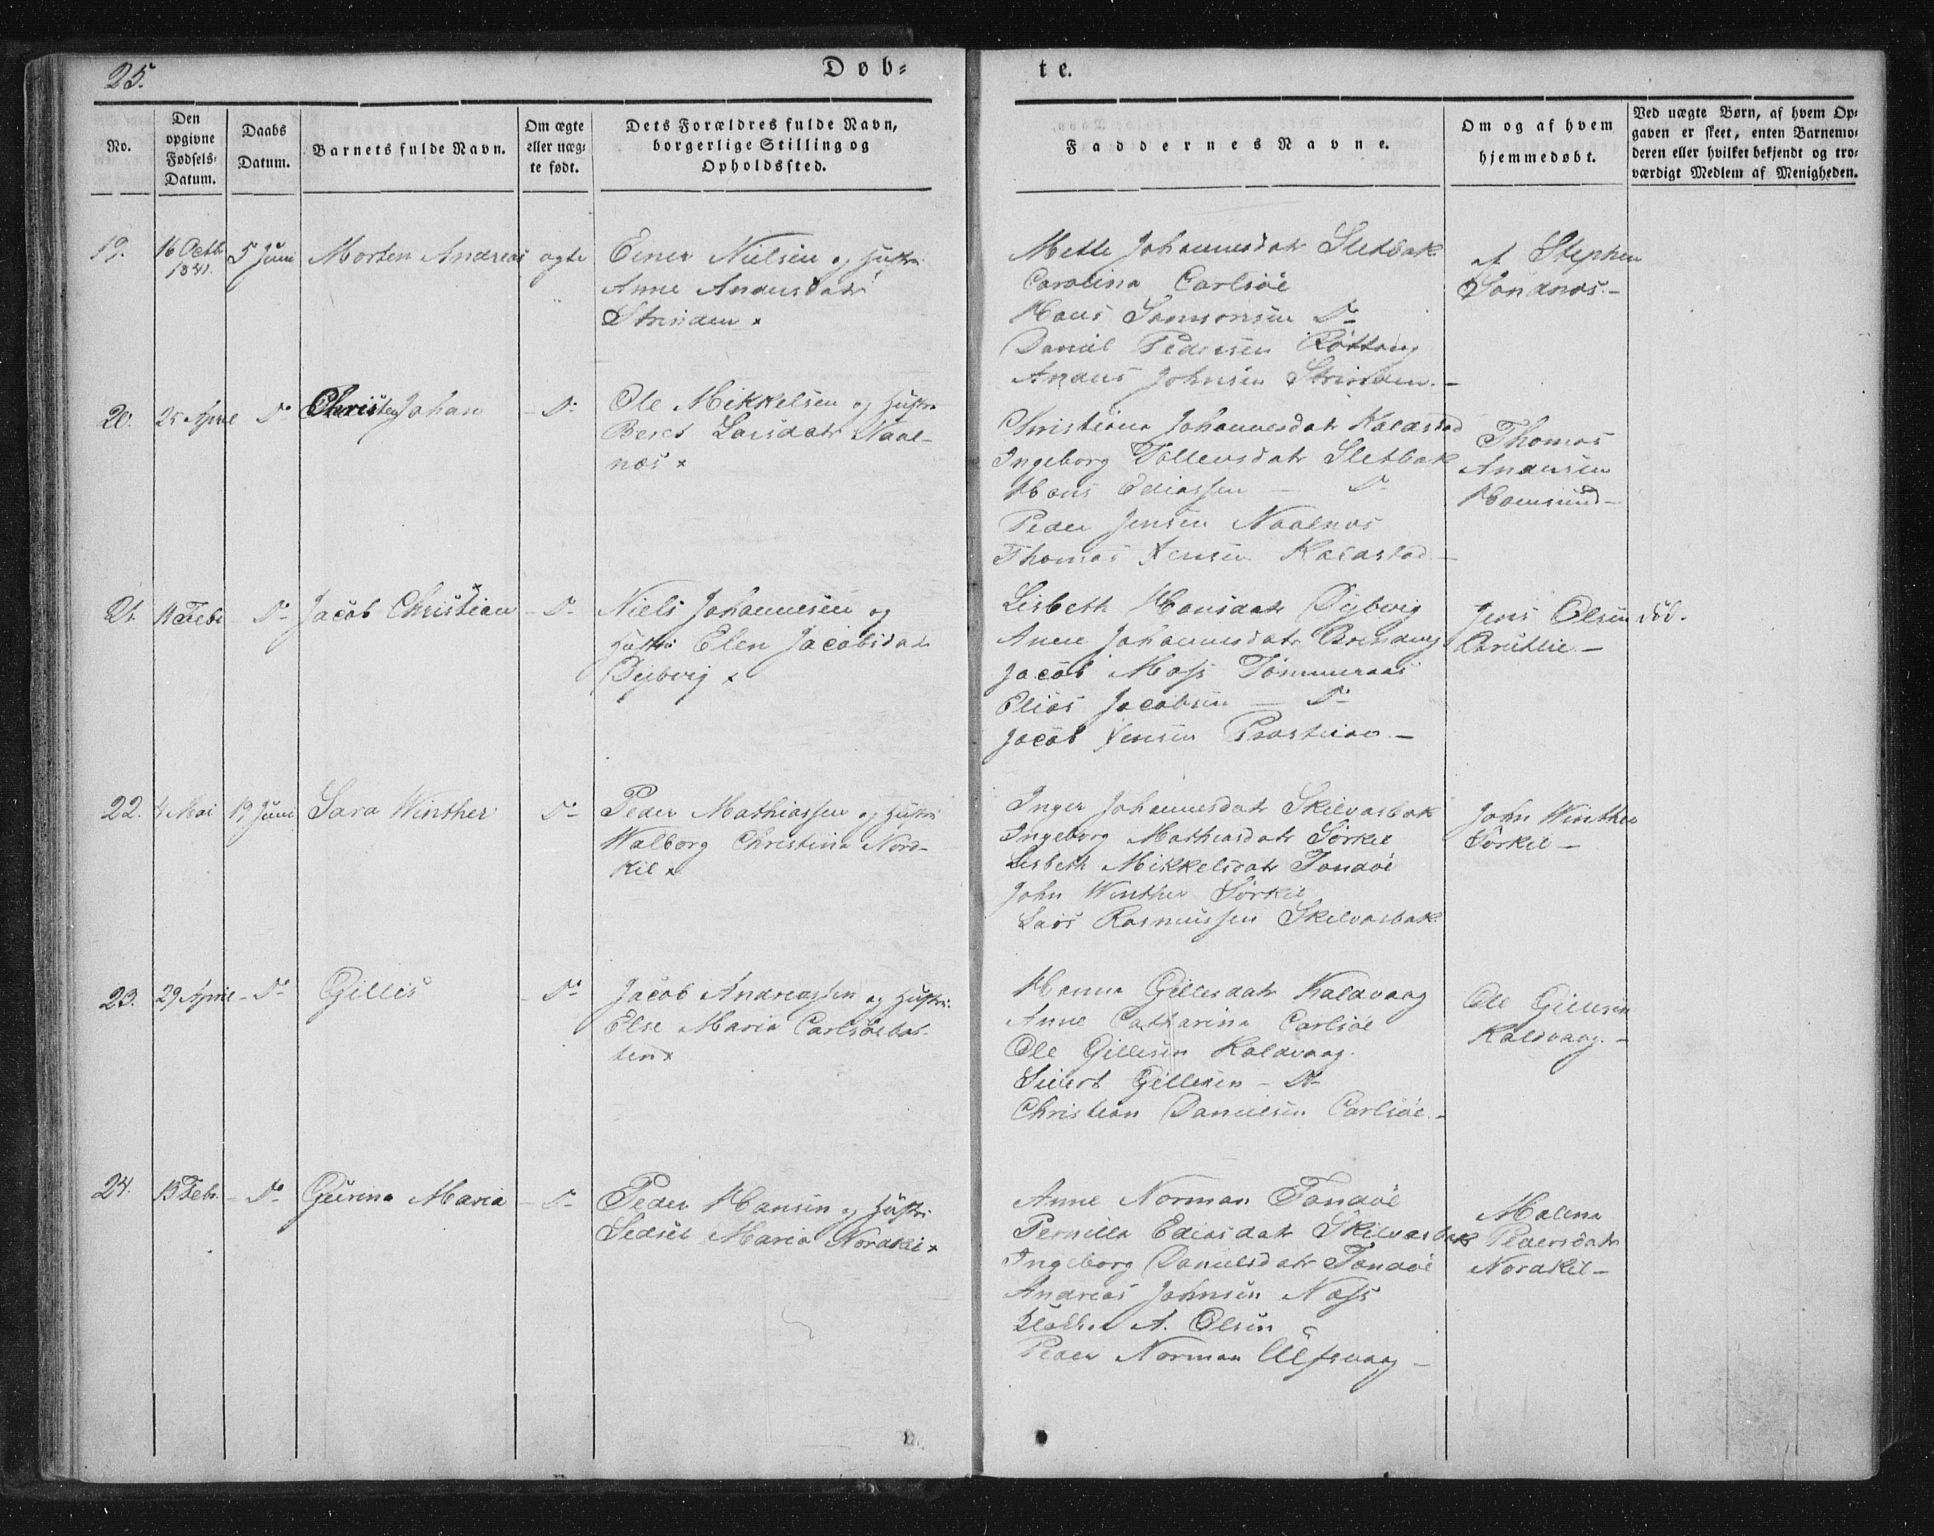 25.
Døb=
te.
No.
Den opgivne Fødsels-Datum.
Daabs Datum.
Barnets fulde Navn.
Om ægte eller uæg-te født.
Dets Forældres fulde Navn, borgerlige Stilling og Opholdssted.
Faddernes Navne.
Om og af hvem hjemmedøbt.
Ved uægte Børn, af hvem Op-
gaven er skeet, enten Barnemo-
deren eller hvilket bekjendt og tro-
værdigt Medlem af Menigheden.
19.
16 Octb 1841.
5 Juni
Morten Andreas
ægte
Einer Nielsen og Hustru
Anne Andersdatr
Strinden x
Mette Johannesdatr Sletbak
Carolina Carlsöe
Hans Samsonsen Do
Daniel Pedersen Röttang
Anders Johnsen Strinden.
af Stephen
Sandnæs.
20.
25 April
Do
Christen Johan
Do
Ole Mikkelsen og Hustru
Beret Larsdatr Naal-
næs x
Christiana Johannesdatr Kaldstad
Ingeborg Tollevsdatr Sletbak
Hans Eliassen Do
Peder Jensen Naalnæs
Thomas Jensen Kaldstad
Thomas
Andersen
Hamsund
21.
11 Febr
Do
Jacob Christian
Do
Niels Johannesen og
Hustru Elen Jacobsdatr
Dybvig x
Lisbeth Hansdatr Dybvig
Anne Johannesdatr
Jacob Moss Tömmeraas
Elias Jacobsen Do
Jacob Jensen
Jens Olsen
död.
22.
4 Mai
19 Juni
Sara Winther
Do
Peder Mathiassen og Hustru
Walborg Christina Nord-
kil x
Inger Johannesdatr Skilvasbak
Ingeborg Mathiasdatr Sörkil
Lisbeth Mikkelsdatr Tandöe
John Winther Sörkil
Lars Rasmussen Skilvasbak
John Winther
Sörkil
23.
29 April
Do
Gilles
Do
Jacob Andreassen og Hustru
Else Maria Carlsöe
Hanna Gillesdatr Kaldvaag
Anne Catharina Carlsöe
Ole Gillesen Kaldvaag.
Sivert Gillesen Do
Christian Danielsen Carlsöe.
Ole Gillesen
Kaldvaag.
24.
13 Febr.
Do
Gurina Maria
Do
Peder Hansen og Hustru
Sedsel Maria Nordkil x
Anne Norman Tandöe
Pernilla Eliasdatr Skilvasbak
Ingeborg Danielsdatr Tandöe
Andreas Johnsen Næss
A. Olsen
Peder Norman Ulfsvaag
Malena
Pedersdatr
Nordkil